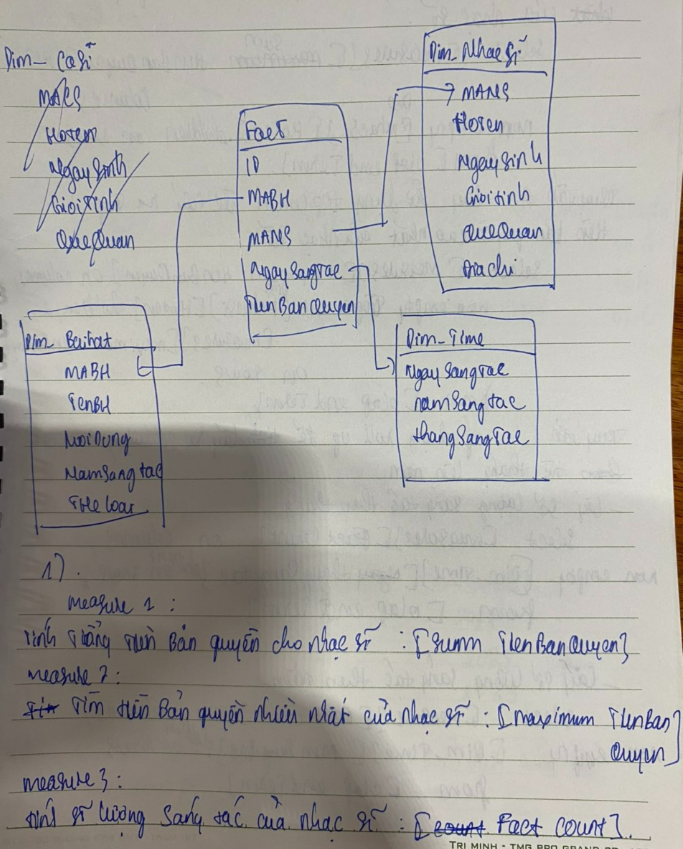 Dim_ Casĩ
MACS
Hoten
NgaySinh
GioiTinh
QueQuan
Dim_ Nhacsĩ
MANS
Hoten
NgaySinh
GioiTinh
QueQuan
DiaChi
Fact
ID
MABH
MANS
NgaySangTac
TienBanQuyen
Dim_ Baihat
MABH
TenBH
NoiDung
NamSangtac
TheLoai
Dim_Time
NgaySangTac
namSangTac
thangSangTac
1).
measure 1 :
Tính Tổng Tiền Bản quyền cho nhạc sĩ : [Sumn TienBanQuyen]
measure 2 :
Tìm tiền Bản quyền nhiều nhất của nhạc sĩ : [maximum TienBan
Quyen]
measure 3 :
tính số lượng Sáng tác của nhạc sĩ : [count Fact Count].
TRI MINH - TMG PRO GRAND